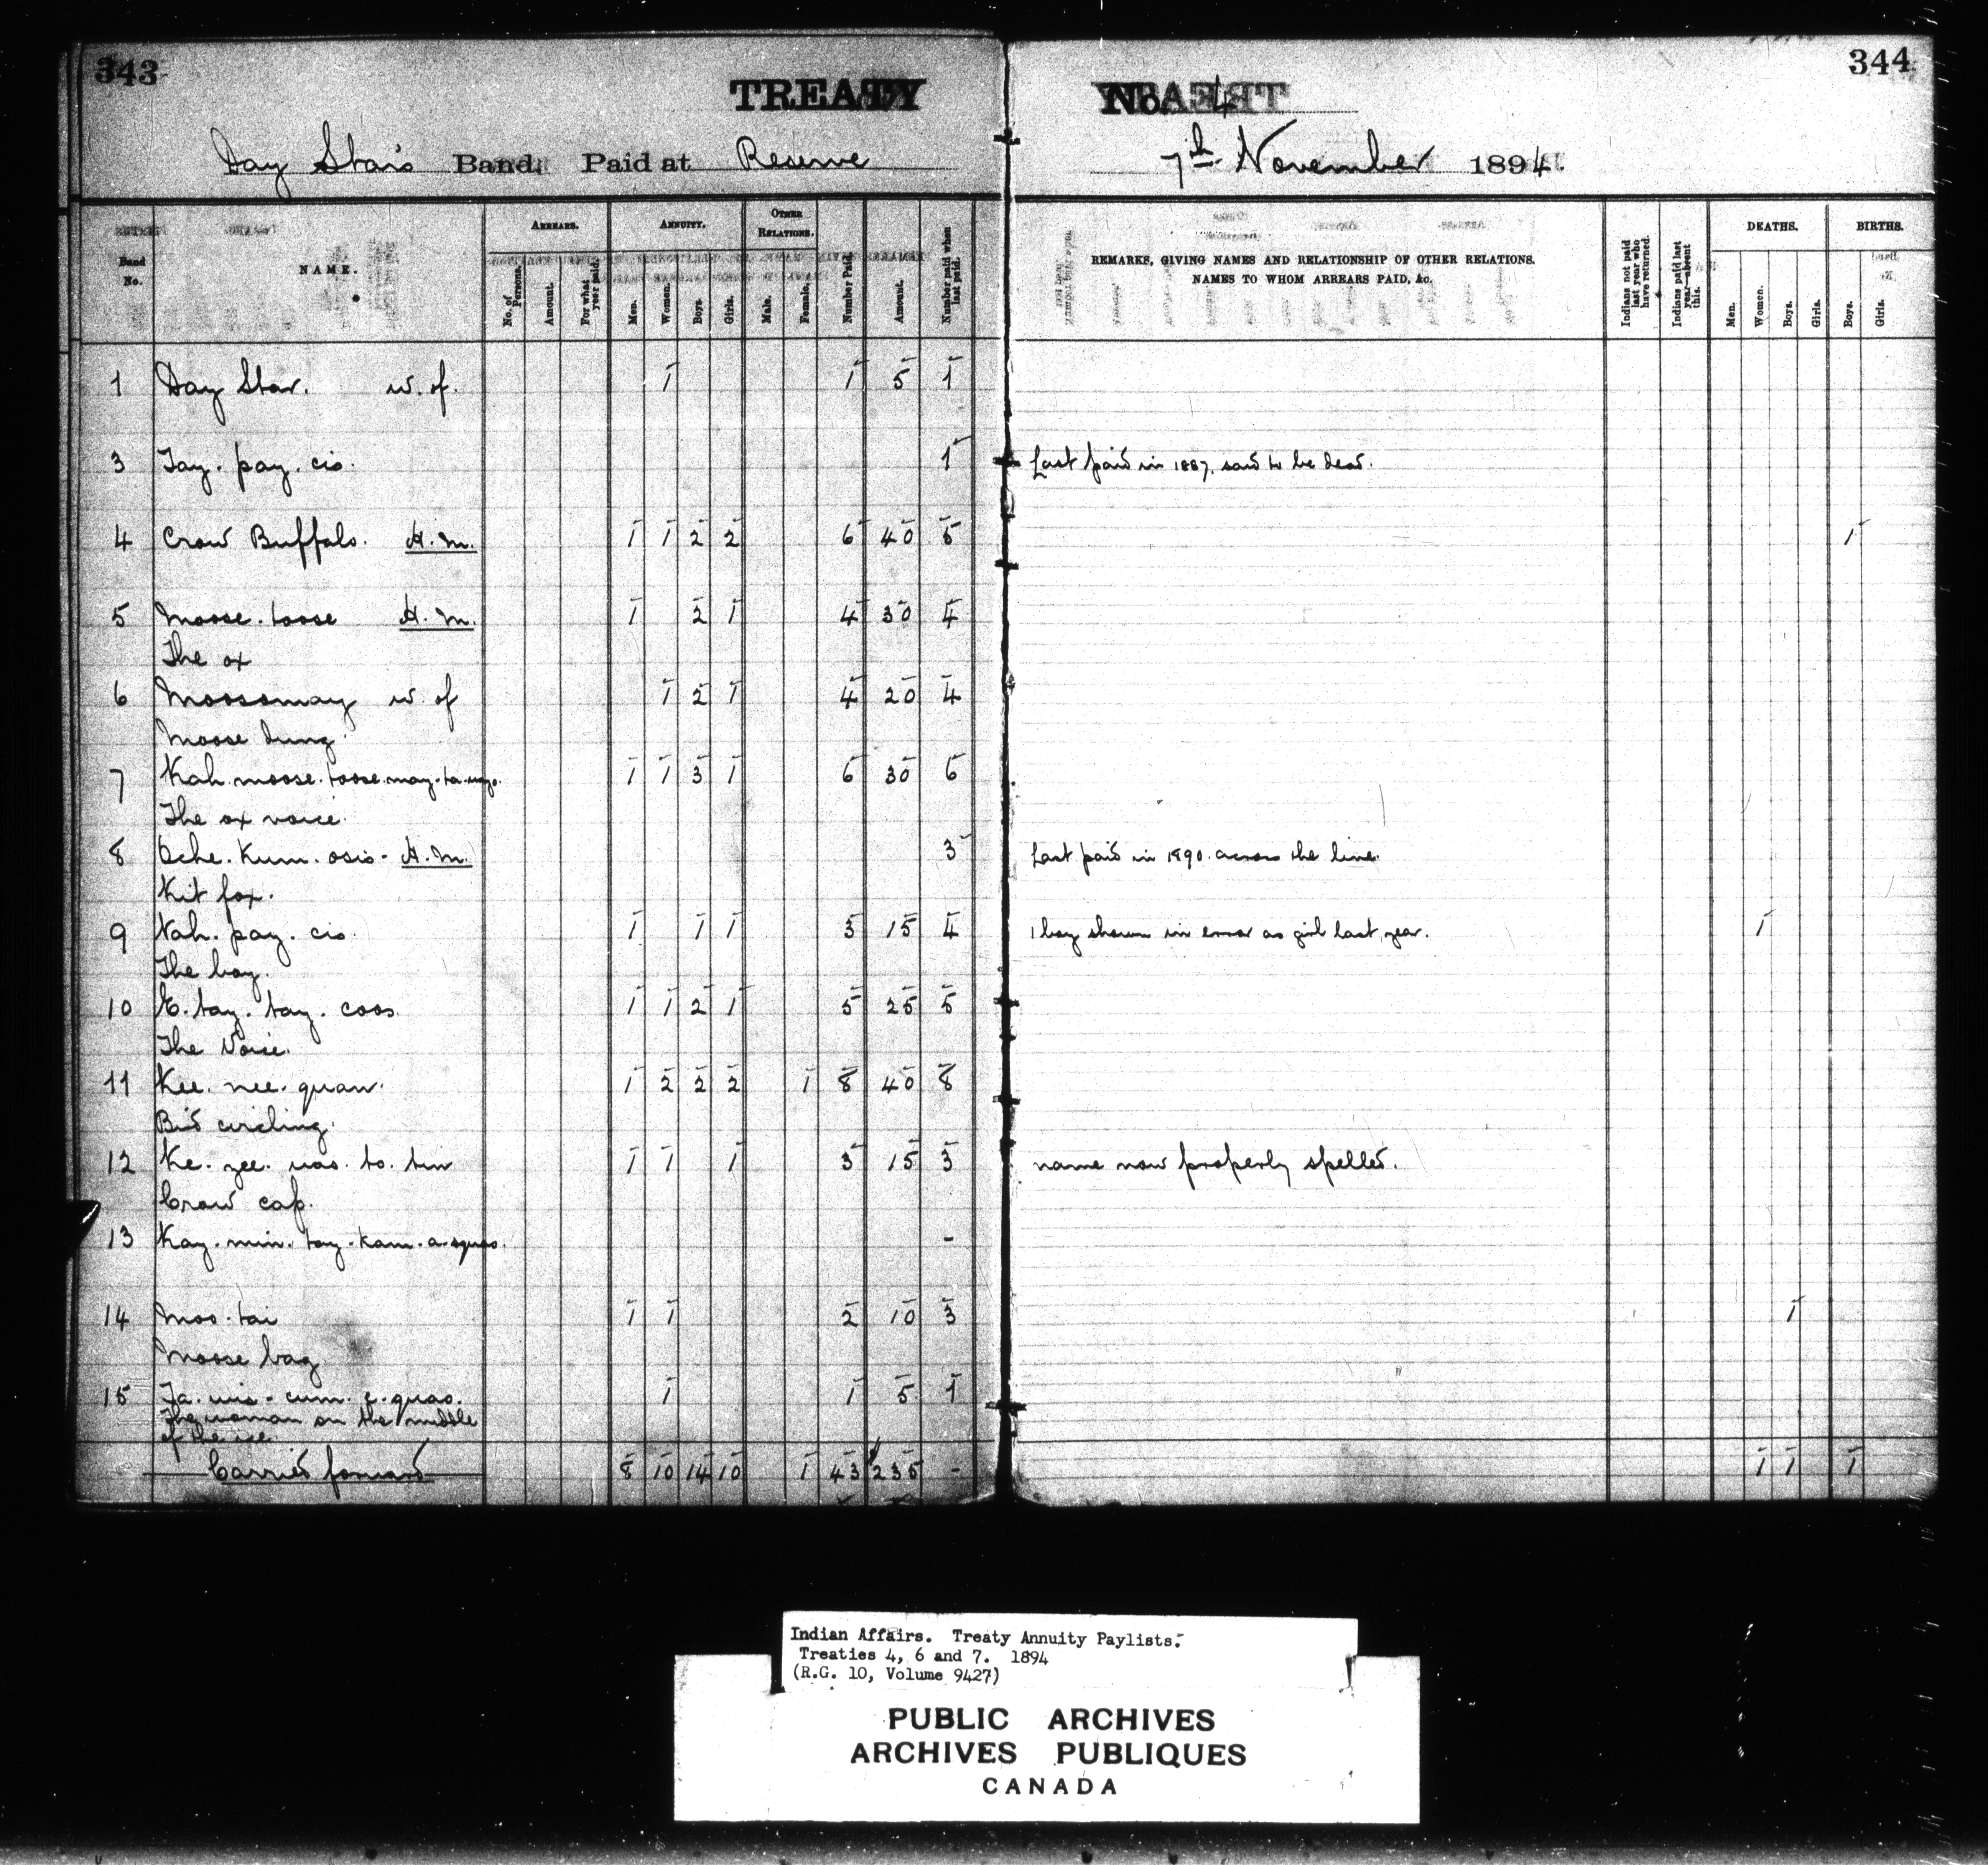 343
344
TREATY
No. 4
Day Star's Band. Paid at Reserve
7th November 1894.
Band No.
NAME.
ARREARS.
No. of Persons.
Amount.
For what year paid.
ANNUITY.
Men.
Women.
Boys.
Girls.
OTHER RELATIONS.
Male.
Female.
Number Paid.
Amount.
Number paid when last paid.
REMARKS, GIVING NAMES AND RELATIONSHIP OF OTHER RELATIONS.
NAMES TO WHOM ARREARS PAID, &c.
Indians not paid last year who have returned.
Indians paid last year—absent this.
DEATHS.
Men.
Women.
Boys.
Girls.
BIRTHS.
Boys.
Girls.
1 Day Star. w. of. 1 1 5 1
3 Tay. pay. cis. 1 Last paid in 1887, said to be dead.
4 Crow Buffalo. H.M. 1 1 2 2 6 40 5 1
5 Moose. toose H.M. 1 2 1 4 30 4
The ox
6 Moosomay w. of 1 2 1 4 20 4
Moose dung.
7 Kah. moose. toose. may. ta. 1 1 3 1 6 30 6
The ox voice.
8 Oche. Kum. osis - H.M. 3 Last paid in 1890. across the line.
Kit fox.
9 Nah. pay. cis. 1 1 1 3 15 4 1 boy shown in error as girl last year. 1
The boy.
10 E. tay. tay. coos. 1 1 2 1 5 25 5
The Voice.
11 Kee. nee. quan. 1 2 2 2 1 8 40 8
Bird circling.
12 Ke. zee. was. to. tin 1 1 1 3 15 3 name now properly spelled.
Crow cap.
13 Kay. min. tay. kam. a. squas. -
14 Moo. tai 1 1 2 10 3 1
Moose bag
15 Ta. wis. cum. e. quas. 1 1 5 1
The woman on the middle
of the ice.
Carried forward 8 10 14 10 1 43 $235 - 1 1 1
Indian Affairs. Treaty Annuity Paylists.
Treaties 4, 6 and 7. 1894
(R.G. 10, Volume 9427)
PUBLIC ARCHIVES
ARCHIVES PUBLIQUES
CANADA